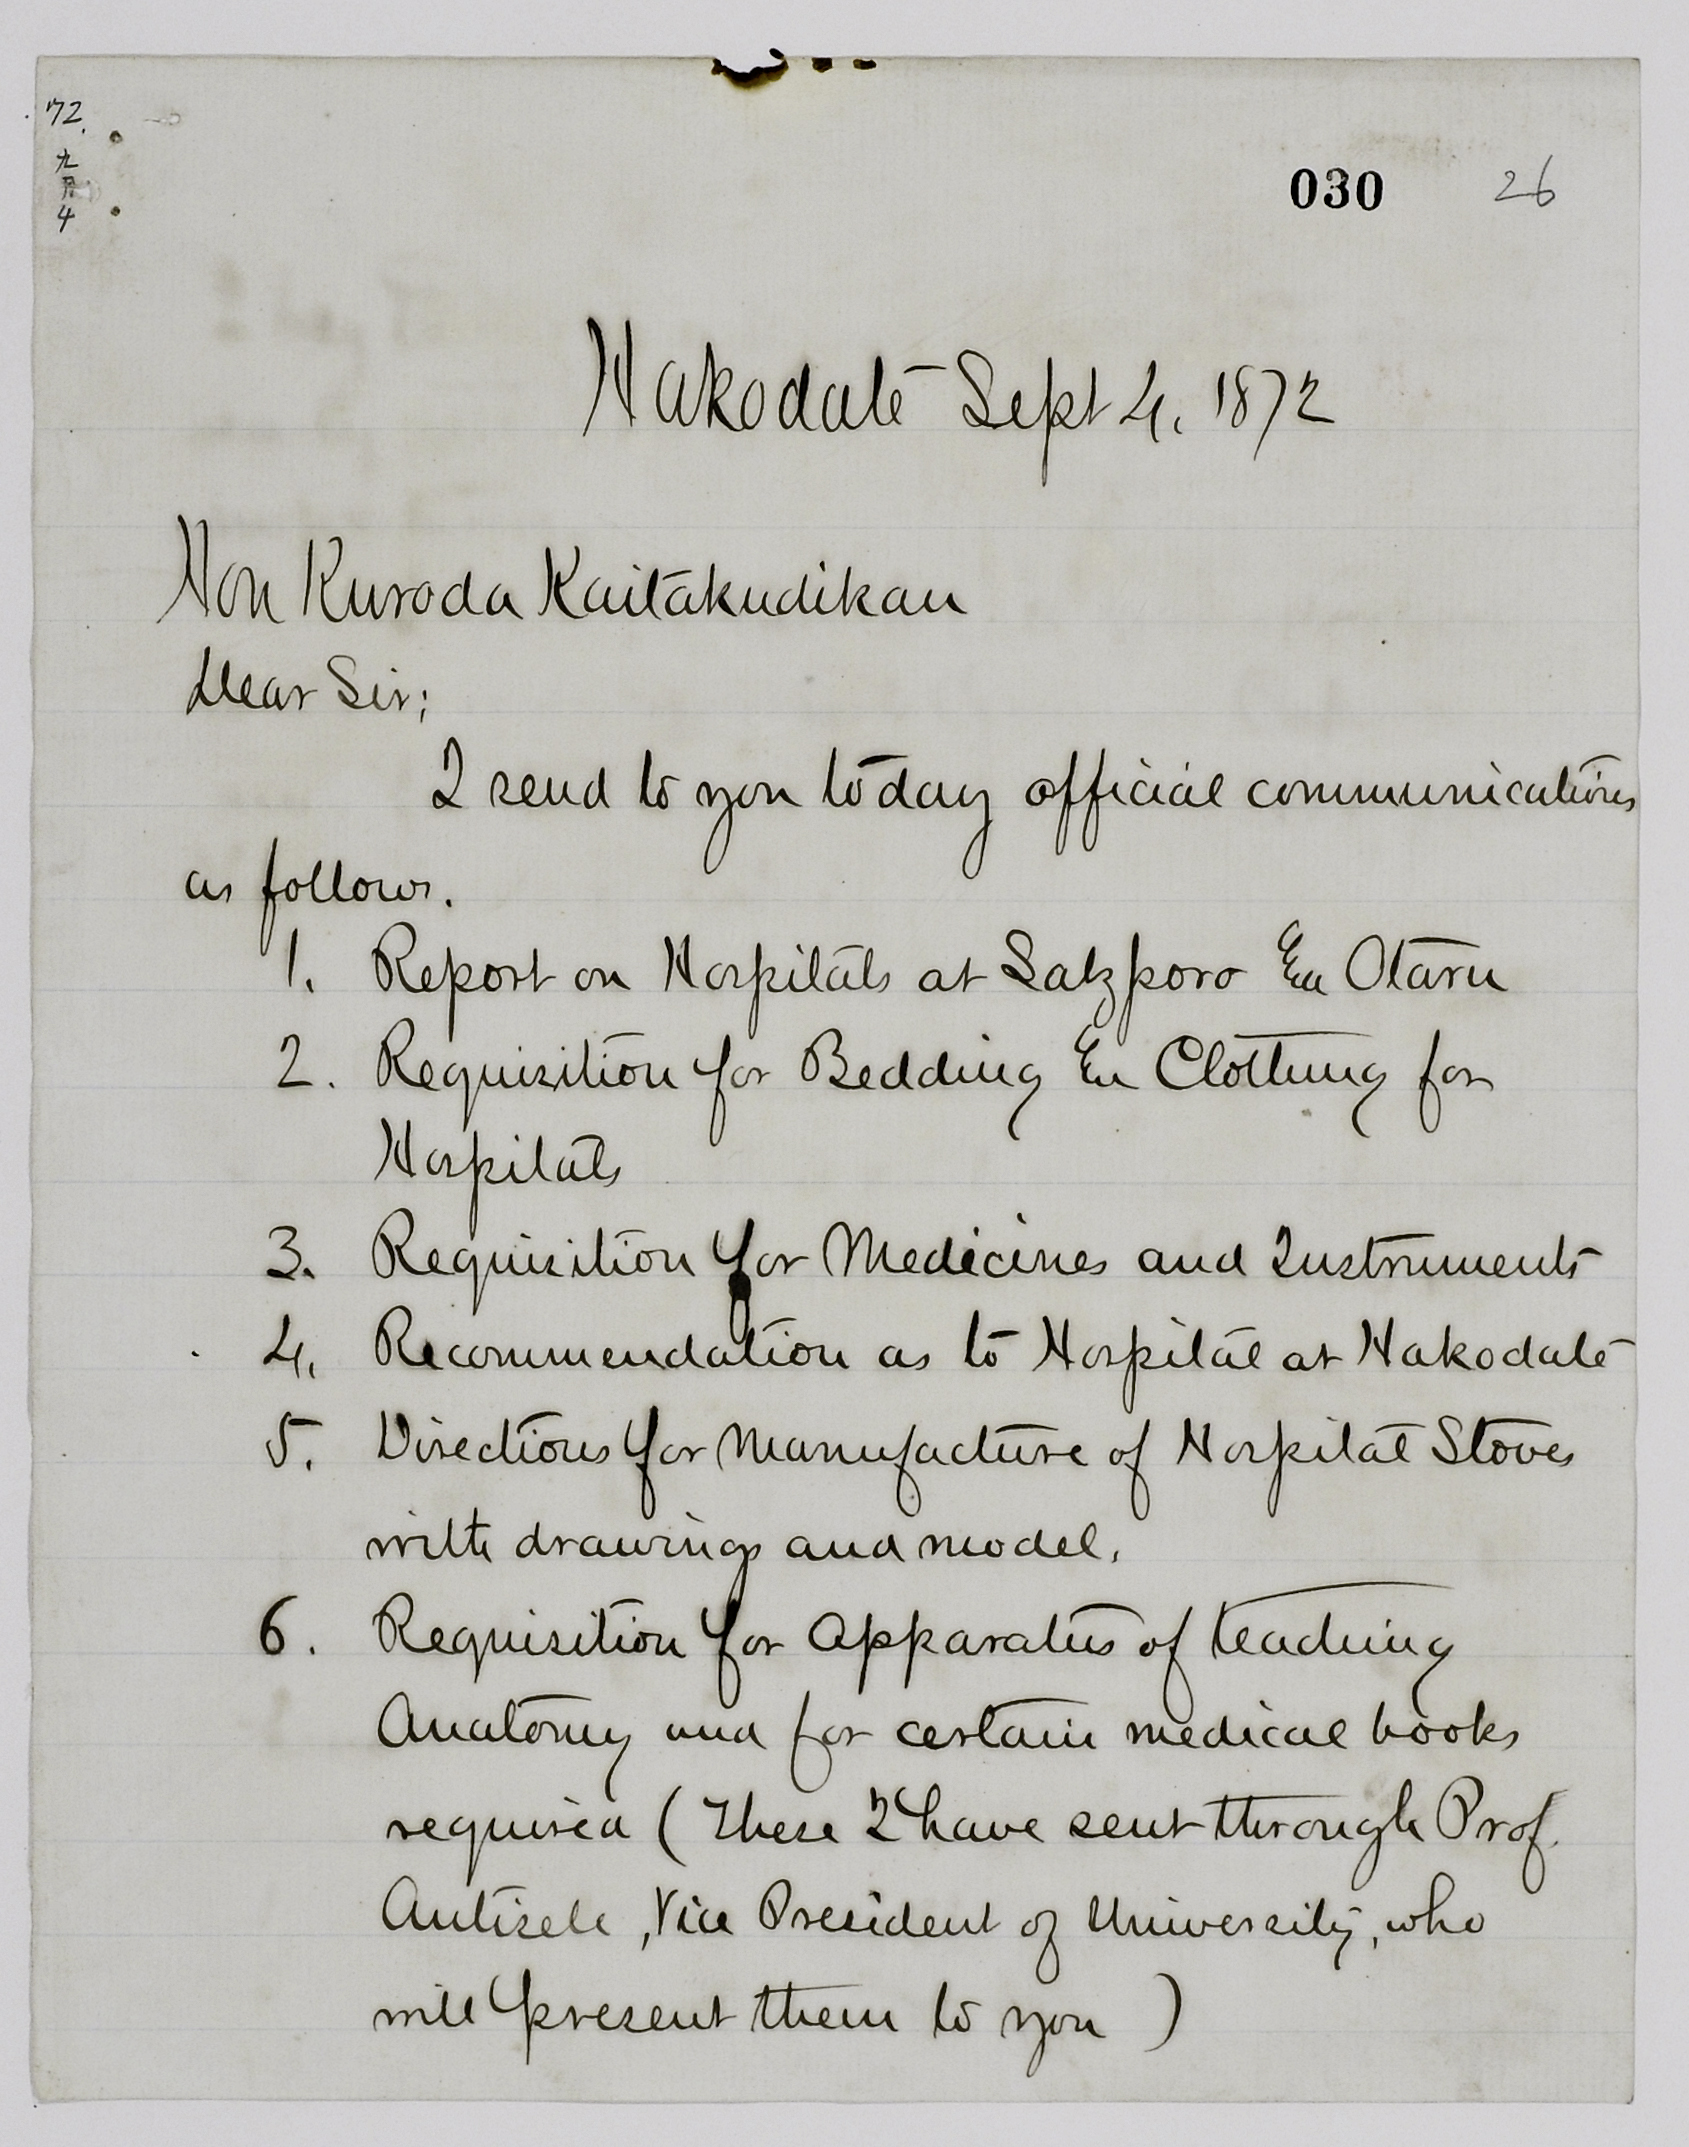 '72.
九
月
4
030 26
Hakodate Sept 4. 1872
Hon Kuroda Kaitakudikan
Dear Sir;
I send to you today official communications
as follows.
1. Report on Hospitals at Satzporo & Otaru
2. Requisition for Bedding & Clothing for
Hospitals
3. Requisition for Medicines and Instruments
4. Recommendation as to Hospital at Hakodate
5. Directions for Manufacture of Hospital Stoves
with drawings and model.
6. Requisition for apparatus of teaching
Anatomy and for certain medical books
required (These I have sent through Prof.
Antisele, Vice President of University, who
will present them to you)